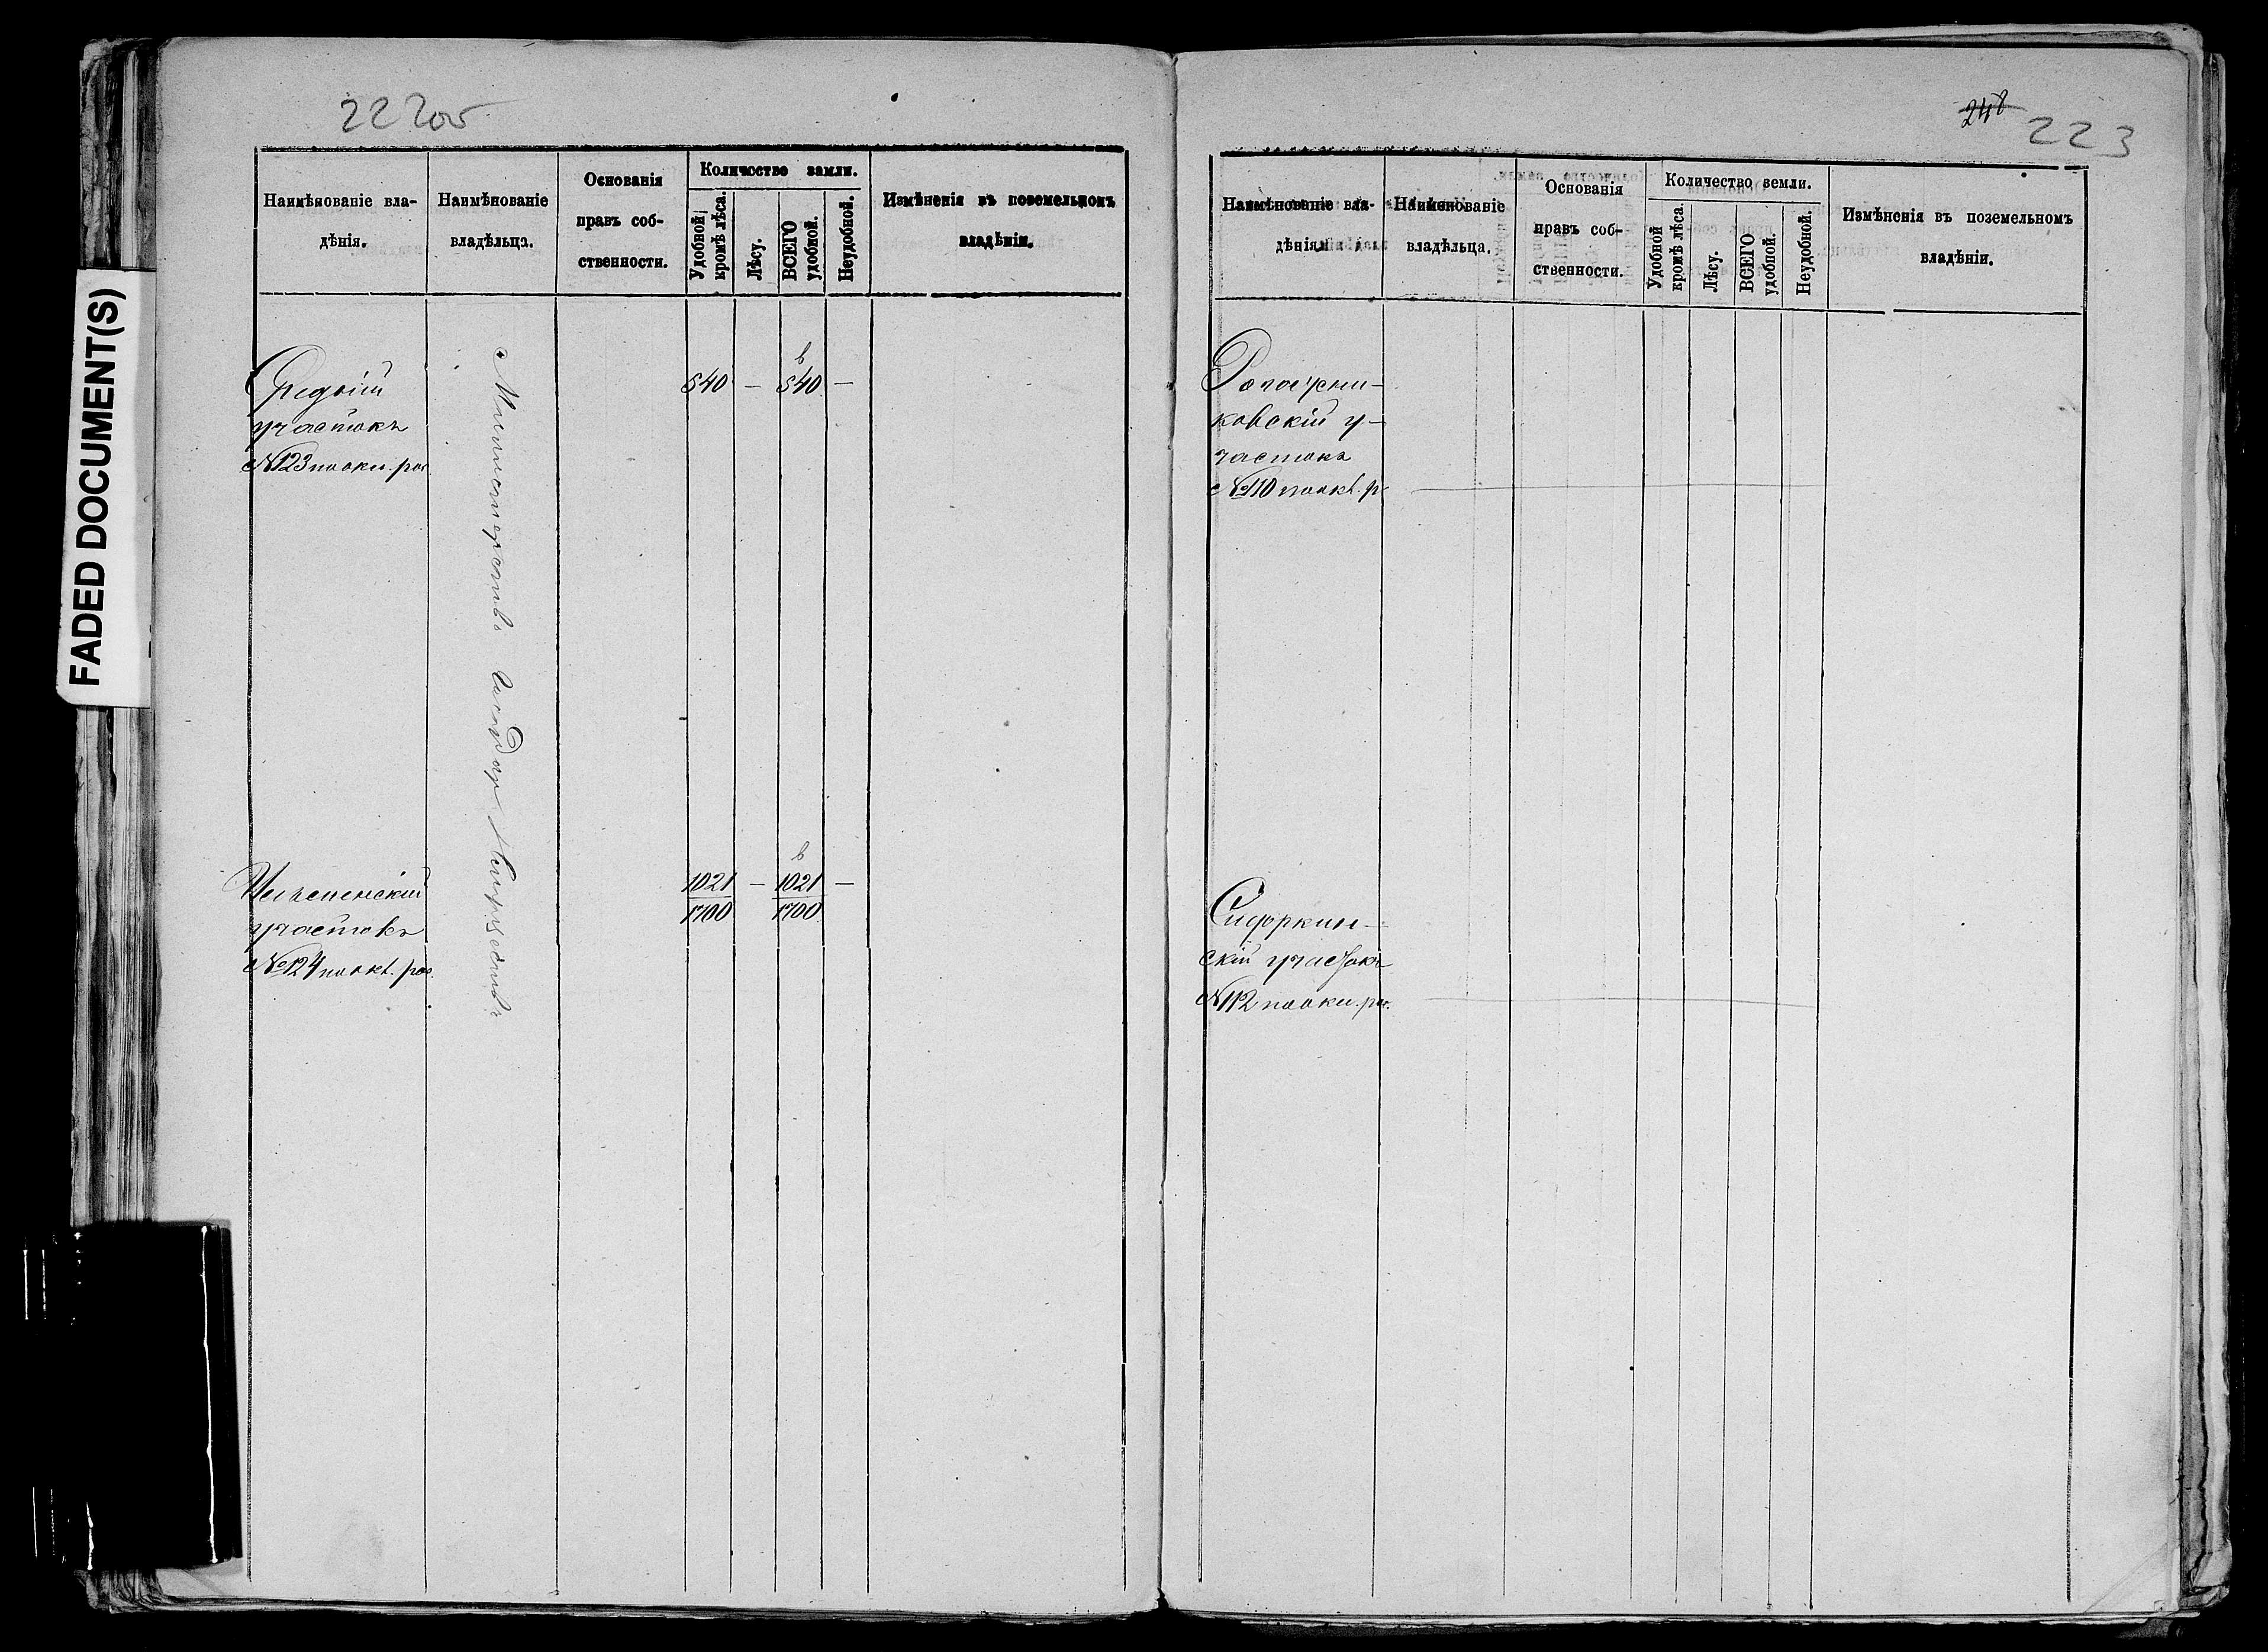 FADED DOCUMENT(S)
222об
Наимѣнованіе вла-
дѣнія.
Наимѣнованіе
владѣльца.
Основанія
правъ соб-
ственности.
Количество земли.
Удобной
кромѣ лѣса.
Лѣсу.
ВСЕГО
удобной.
Неудобной.
Измѣненія въ поземельномъ
владѣніи.
Средній
участокъ
№123 по оки. рос.
540 — 540 —
Министерство Государ Имуществъ
участокъ
№124 по окл. рос.
1021 — 1021 —
1700 1700
248
223
Наимѣнованіе вла-
дѣнія.
Наимѣнованіе
владѣльца.
Основанія
правъ соб-
ственности.
Количество земли.
Удобной
кромѣ лѣса.
Лѣсу.
ВСЕГО
удобной.
Неудобной.
Измѣненія въ поземельномъ
владѣніи.
ковскій у-
частокъ
№110 по окл. р.
Сидоркин-
скій участокъ
№112 по оки. рос.